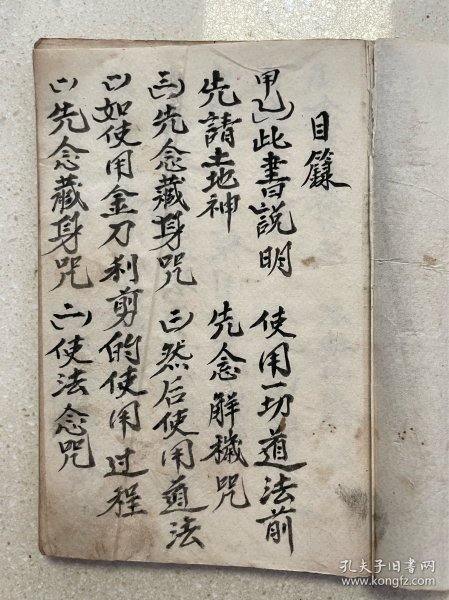 目籙
甲乙)此書說明 使用一切道法前
先請土地神 先念解穢咒
(三)先念藏身咒 (三)然后使用道法
(一)如使用金刀利剪的使用过程
(一)先念藏身咒 (二)使法念咒
孔夫子旧书网
www.kongfz.com